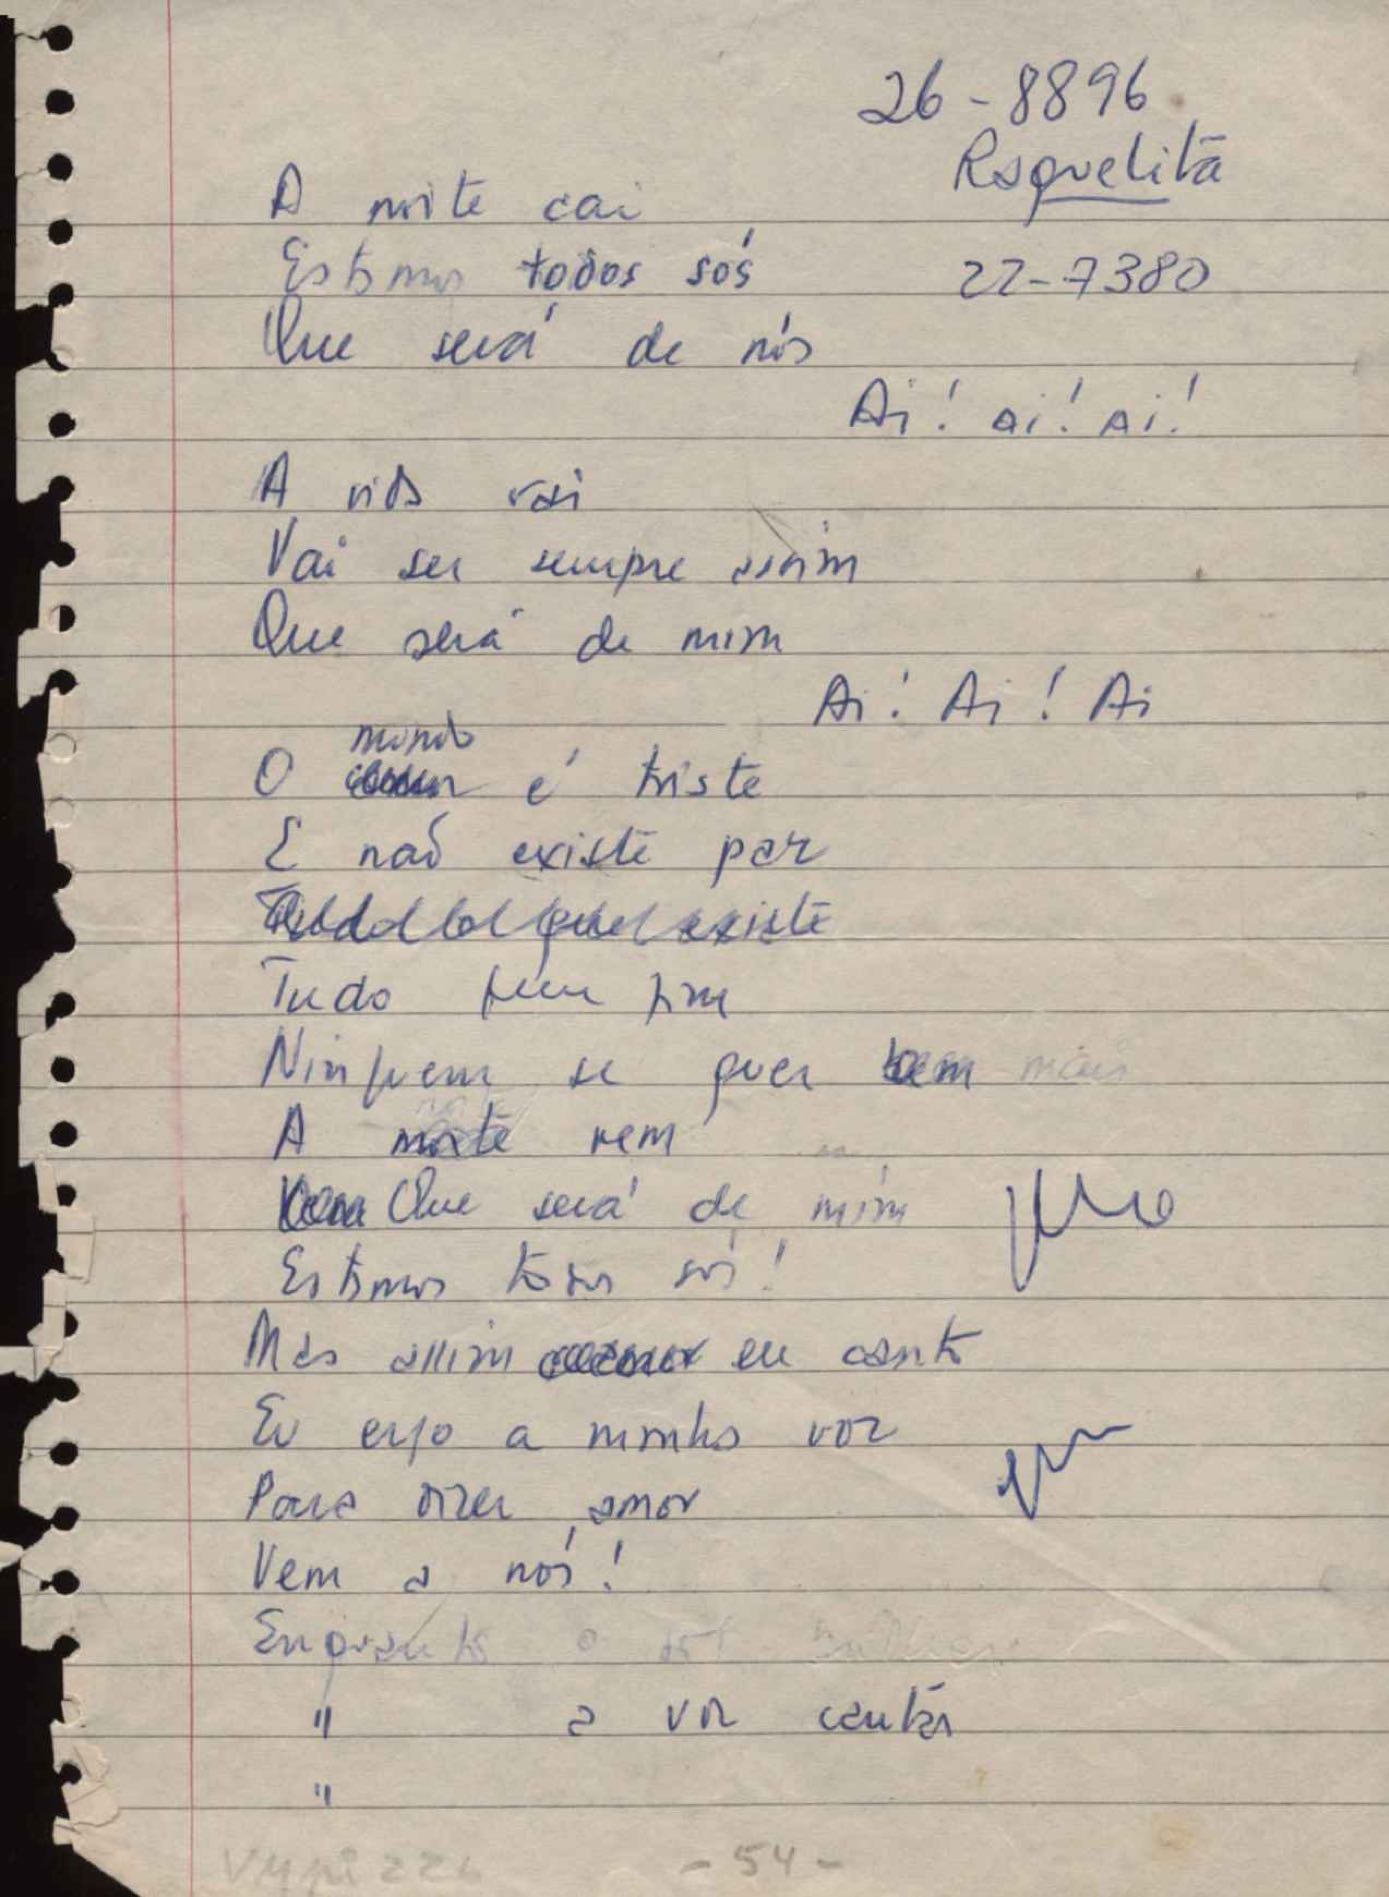 26-8896
Raquelita
A noite cai
Estamos todos sós
22-7380
Que será de nós
Ai! ai! ai!
A vida vai
Vai ser sempre assim
Que será de mim
Ai! Ai! Ai
mundo
O é triste
E não existe paz
Tudo o que existe
Tudo tem fim
Ninguem se quer bem mais
A noite vem
Vem Que será de mim
Estamos todos sós!
Mas assim eu canto
Eu ergo a minha voz
Para dizer amor
Vem a nós!
Enquanto o sol brilhar
" a voz cantar
"
- 54 -